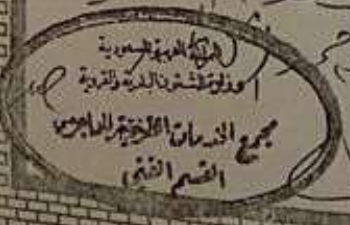 المملكة العربية السعودية
وزارة الشئون البلدية والقروية
مجمع الخدمات القروية
القسم الفني